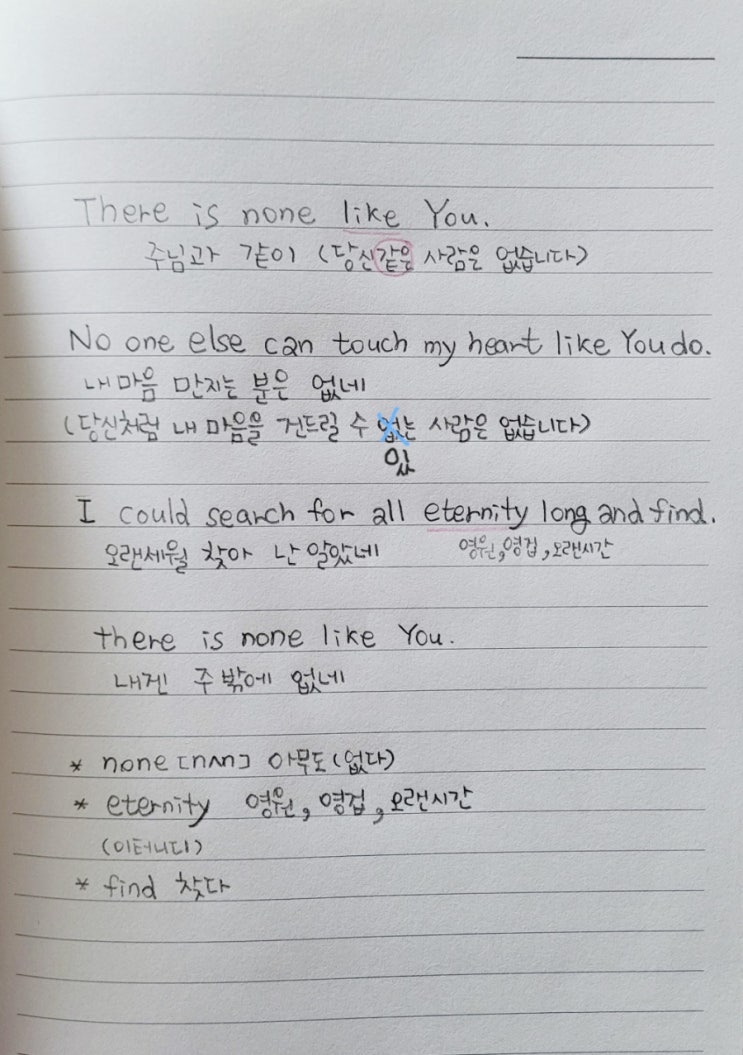 There is none like You.
주님과 같이 (당신같은 사람은 없습니다)
No one else can touch my heart like You do.
내 마음 만지는 분은 없네
(당신처럼 내 마음을 건드릴 수 없는 사람은 없습니다)
있
I could search for all eternity long and find.
오랜세월 찾아 난 알았네 영원,영겁,오랜시간
there is none like You.
내겐 주 밖에 없네
* none [nʌn] 아무도(없다)
* eternity 영원, 영겁, 오랜시간
(이터니디)
* find 찾다